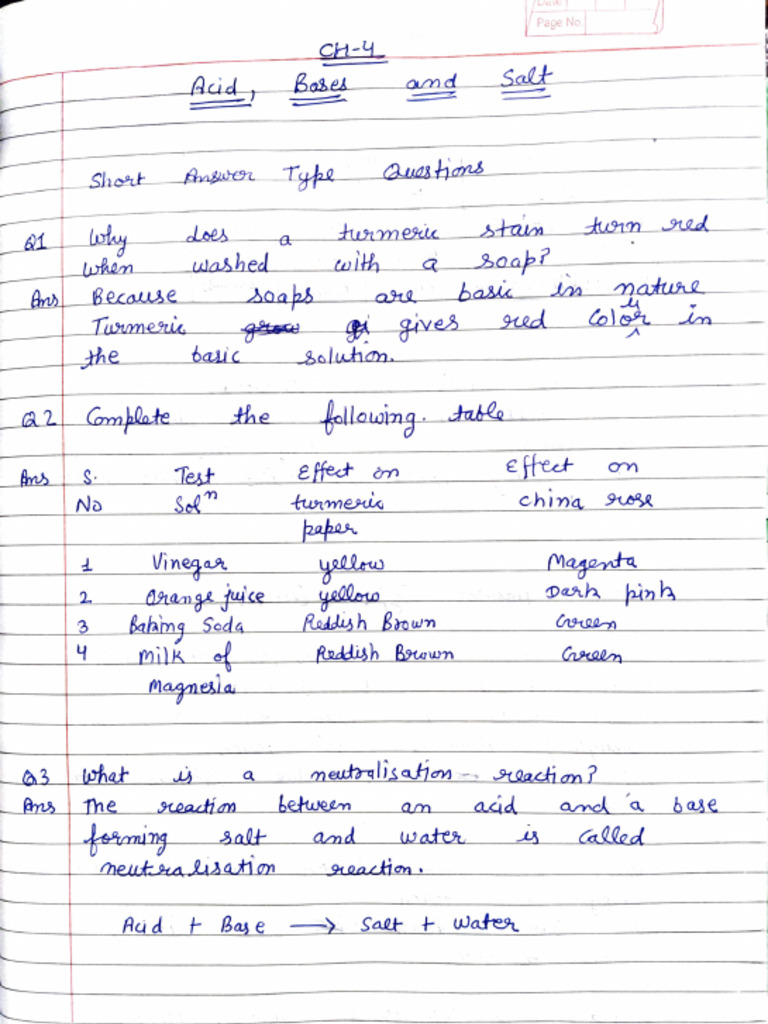 Date:
Page No.
CH-4
Acid, Bases and Salt
Short Answer Type Questions
Q1 Why does a turmeric stain turn red
when washed with a soap?
Ans Because soaps are basic in nature
Turmeric gives red colour in
the basic solution.
Q2 Complete the following. table
Ans S. Test Effect on Effect on
No Solⁿ turmeric china rose
paper
1 Vinegar yellow Magenta
2 Orange juice yellow Dark pink
3 Baking Soda Reddish Brown Green
4 Milk of Reddish Brown Green
Magnesia
Q3 What is a neutralisation reaction?
Ans The reaction between an acid and a base
forming salt and water is called
neutralisation reaction.
Acid + Base → Salt + Water